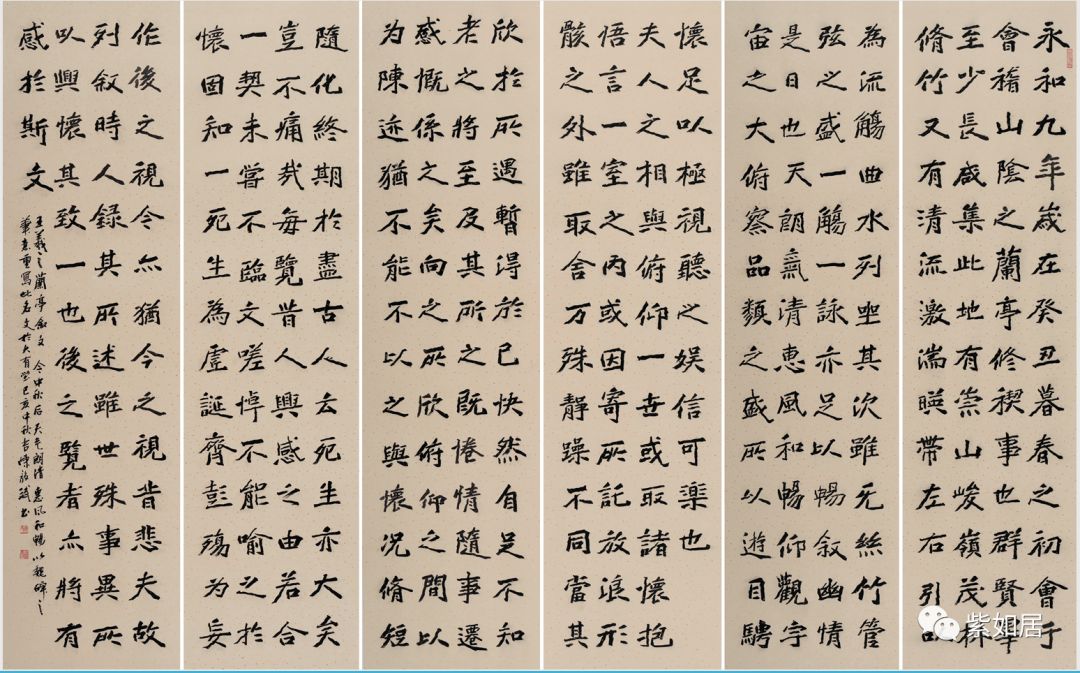 永和九年歲在癸丑暮春之初會于
會稽山陰之蘭亭修禊事也群賢畢
至少長咸集此地有崇山峻嶺茂林
脩竹又有清流激湍暎帶左右引以
為流觴曲水列坐其次雖无絲竹管
弦之盛一觴一詠亦足以暢叙幽情
是日也天朗氣清惠風和暢仰觀宇
宙之大俯察品類之盛所以遊目騁
懷足以極視聽之娱信可樂也
夫人之相與俯仰一世或取諸懷抱
悟言一室之內或因寄所託放浪形
骸之外雖取舍万殊靜躁不同當其
欣於所遇暫得於己快然自足不知
老之將至及其所之既惓情隨事遷
感慨係之矣向之所欣俯仰之間以
为陳迹猶不能不以之與懷况脩短
隨化終期於盡古人云死生亦大矣
豈不痛哉每覽昔人興感之由若合
一契未嘗不臨文嗟悼不能喻之於
懷固知一死生為虛誕齊彭殤为妄
作後之視今亦猶今之視昔悲夫故
列叙時人錄其所述雖世殊事異所
以興懷其致一也後之覽者亦將有
感於斯文
王羲之蘭亭叙文今中秋后天气朗清惠风和暢以魏碑之
筆意重寫此名文於大有堂己亥中秋書
紫如居